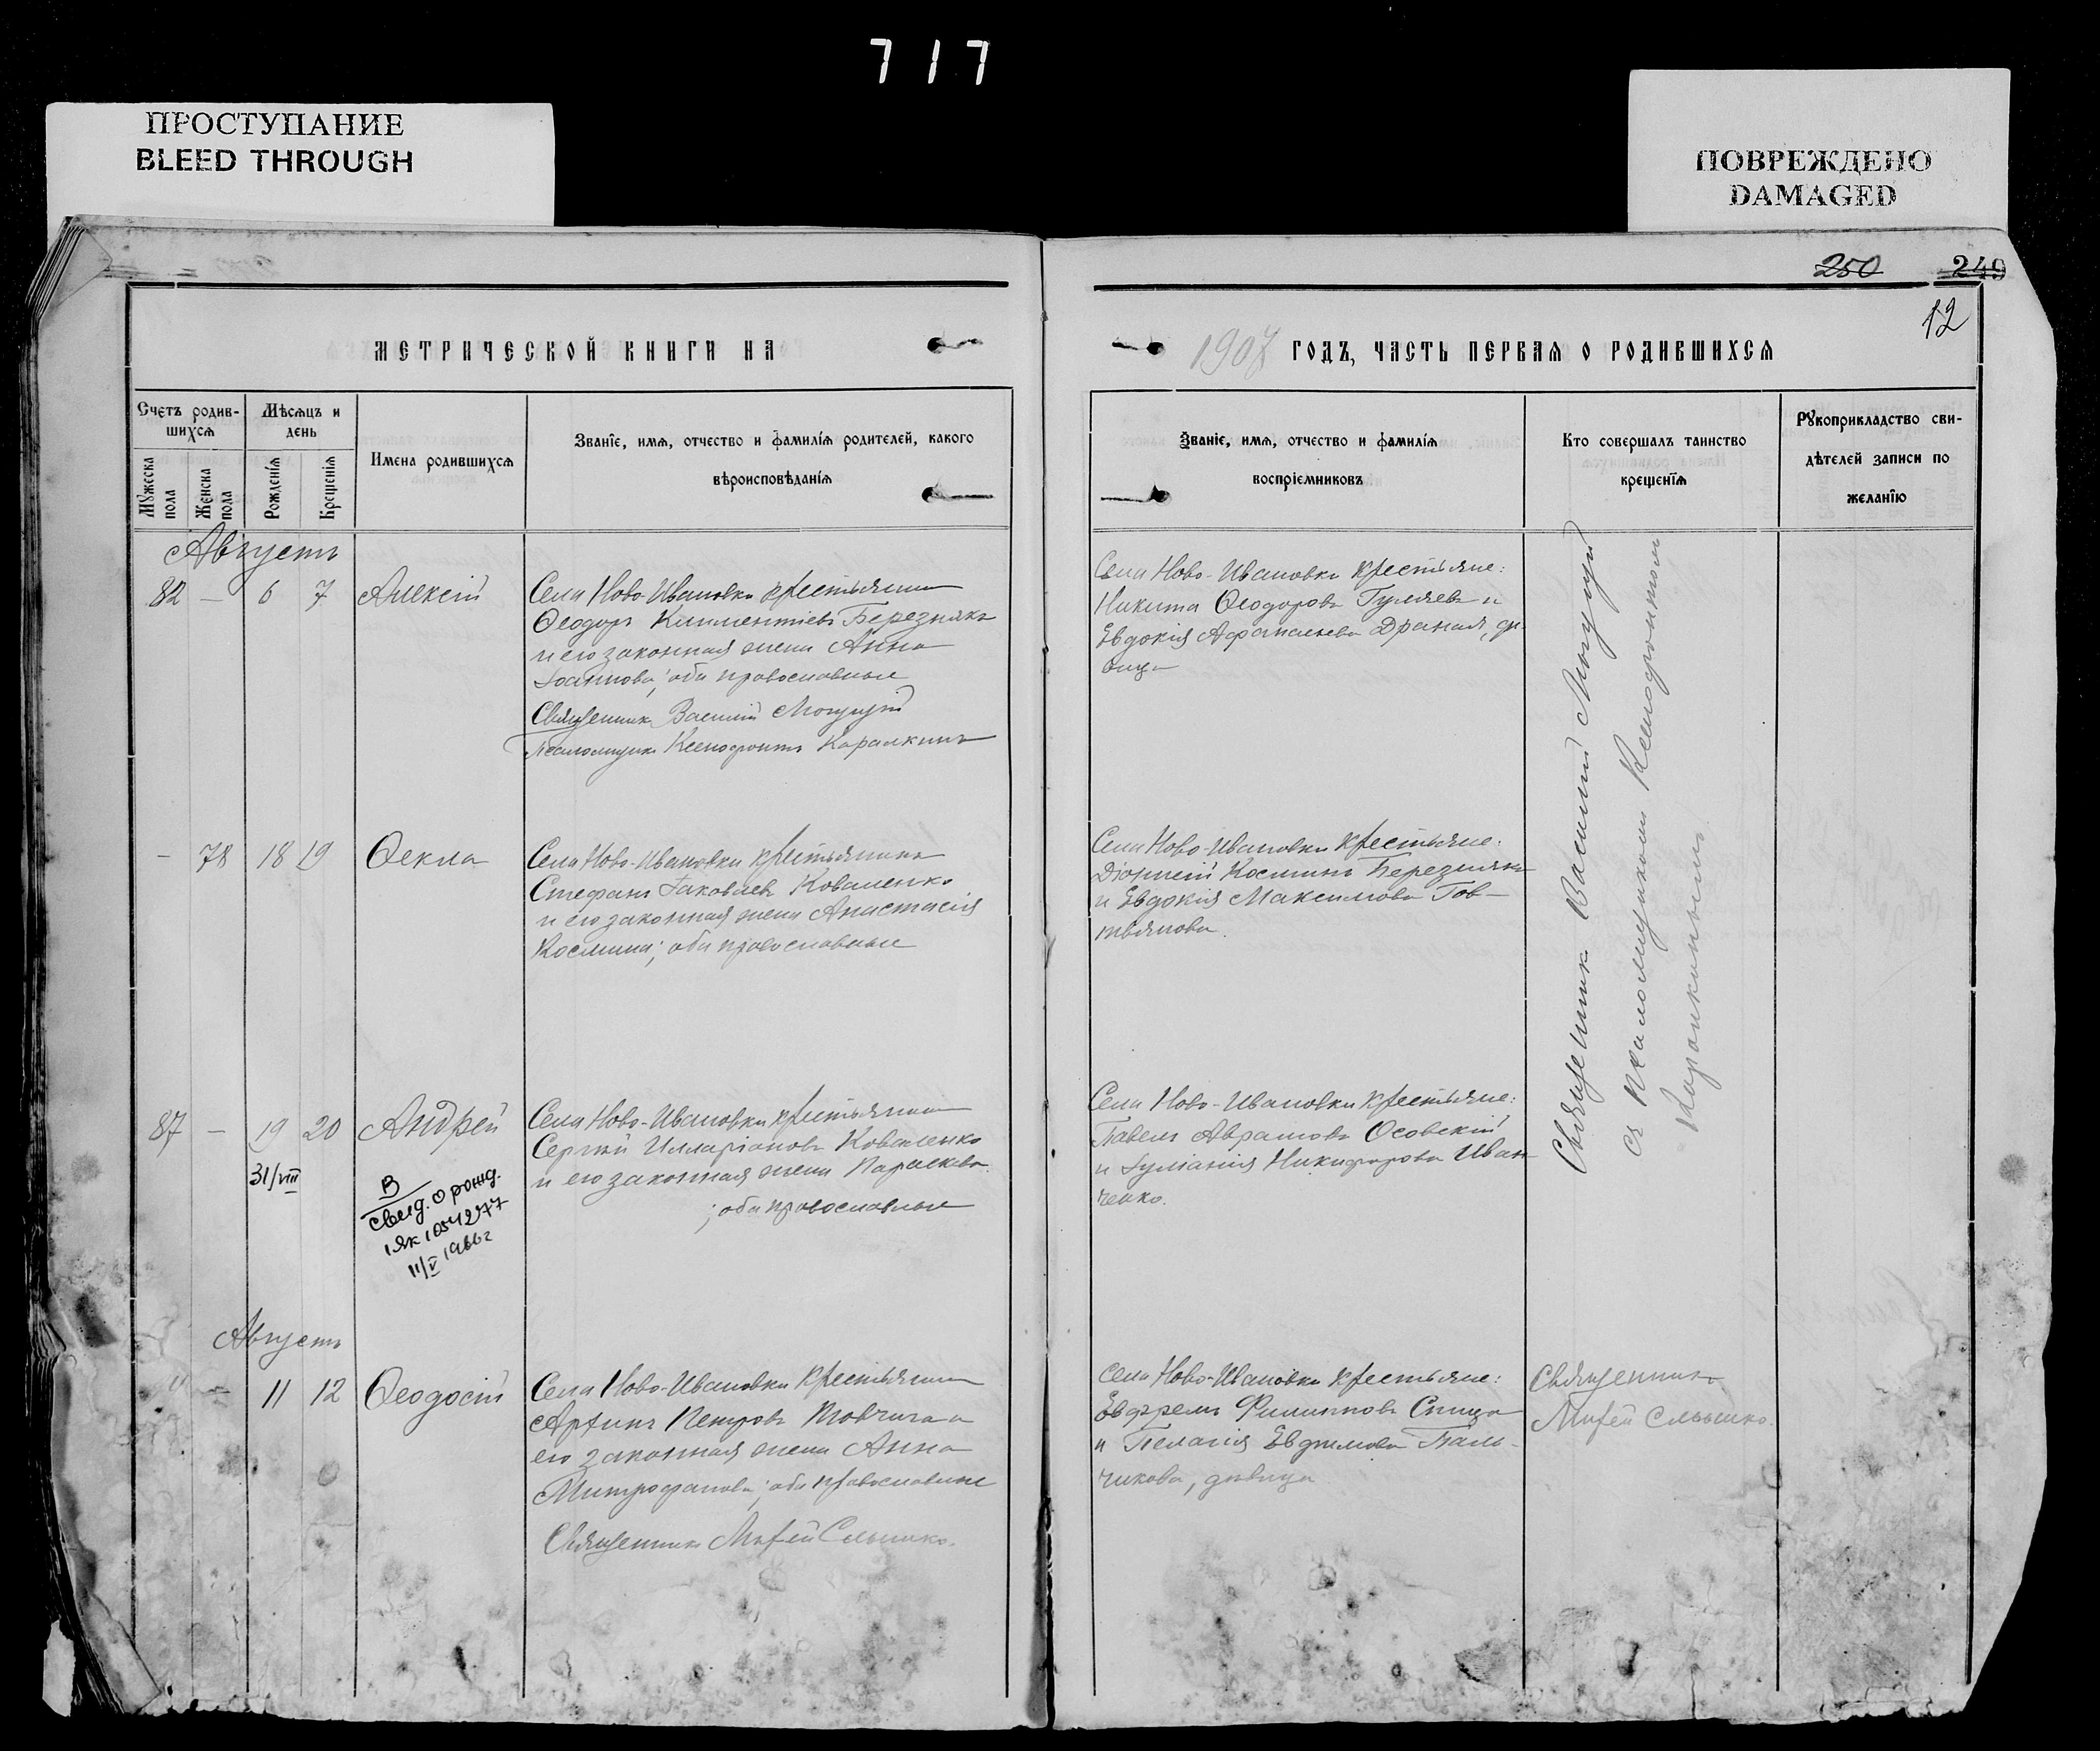 717
ПРОСТУПАНИЕ
BLEED THROUGH
ПОВРЕЖДЕНО
DAMAGED
250 249
12
МЕТРИЧЕСКОЙ КНИГИ НА
1907 ГОДЪ, ЧАСТЬ ПЕРВАЯ О РОДИВШИХСЯ
Счетъ родив-
шихся
Мѣсяцъ и
день
Мужеска пола
Женска пола
Рожденія
Крещенія
Имена родившихся
Званіе, имя, отчество и фамилія родителей, какого
вѣроисповѣданія
Званіе, имя, отчество и фамилія
воспріемниковъ
Кто совершалъ таинство
крещенія
Рукоприкладство сви-
дѣтелей записи по
желанію
Августъ
82 — 6 7 Алексій
Села Ново-Ивановки крестьянинъ
Ѳеодоръ Климентіевъ Березнякъ
и его законная жена Анна
Іоаннова; оба православные
Священникъ Василій Могущій
Псаломщикъ Ксенофонтъ Каралкинъ
Села Ново-Ивановки крестьяне:
Никита Ѳеодоровъ Гуляевъ и
Евдокія Афанасьева Драная, дѣ-
вица
— 78 18 19 Ѳекла
Села Ново-Ивановки крестьянинъ
Стефанъ Іаковлевъ Коваленко
и его законная жена Анастасія
Космина; оба православные
Села Ново-Ивановки крестьяне:
Діонисій Косминъ Березнякъ
и Евдокія Максимова Тов-
твянова.
87 — 19 20 Андрей
31/VIII
В
свид. о рожд.
1 ЯК 1054277
11/V 1966г
Села Ново-Ивановки крестьянинъ
Сергій Илларіоновъ Коваленко
и его законная жена Параскева
; оба православные
Села Ново-Ивановки крестьяне:
Павелъ Аврамовъ Осовскій
и Іуліанія Никифорова Иван-
ченко.
Священникъ Василій Могущій
съ псаломщикомъ Ксенофонтомъ
Каралкинымъ
Августъ
— 11 12 Ѳеодосій
Села Ново-Ивановки крестьянинъ
Петровъ Товчига и
его законная жена Анна
Митрофанова; оба православные
Священникъ Слышко.
Села Ново-Ивановки крестьяне:
Евфремъ Филипповъ Спица
и Пелагія Евфимова Паль-
чикова, дѣвица
Священникъ
Слышко.